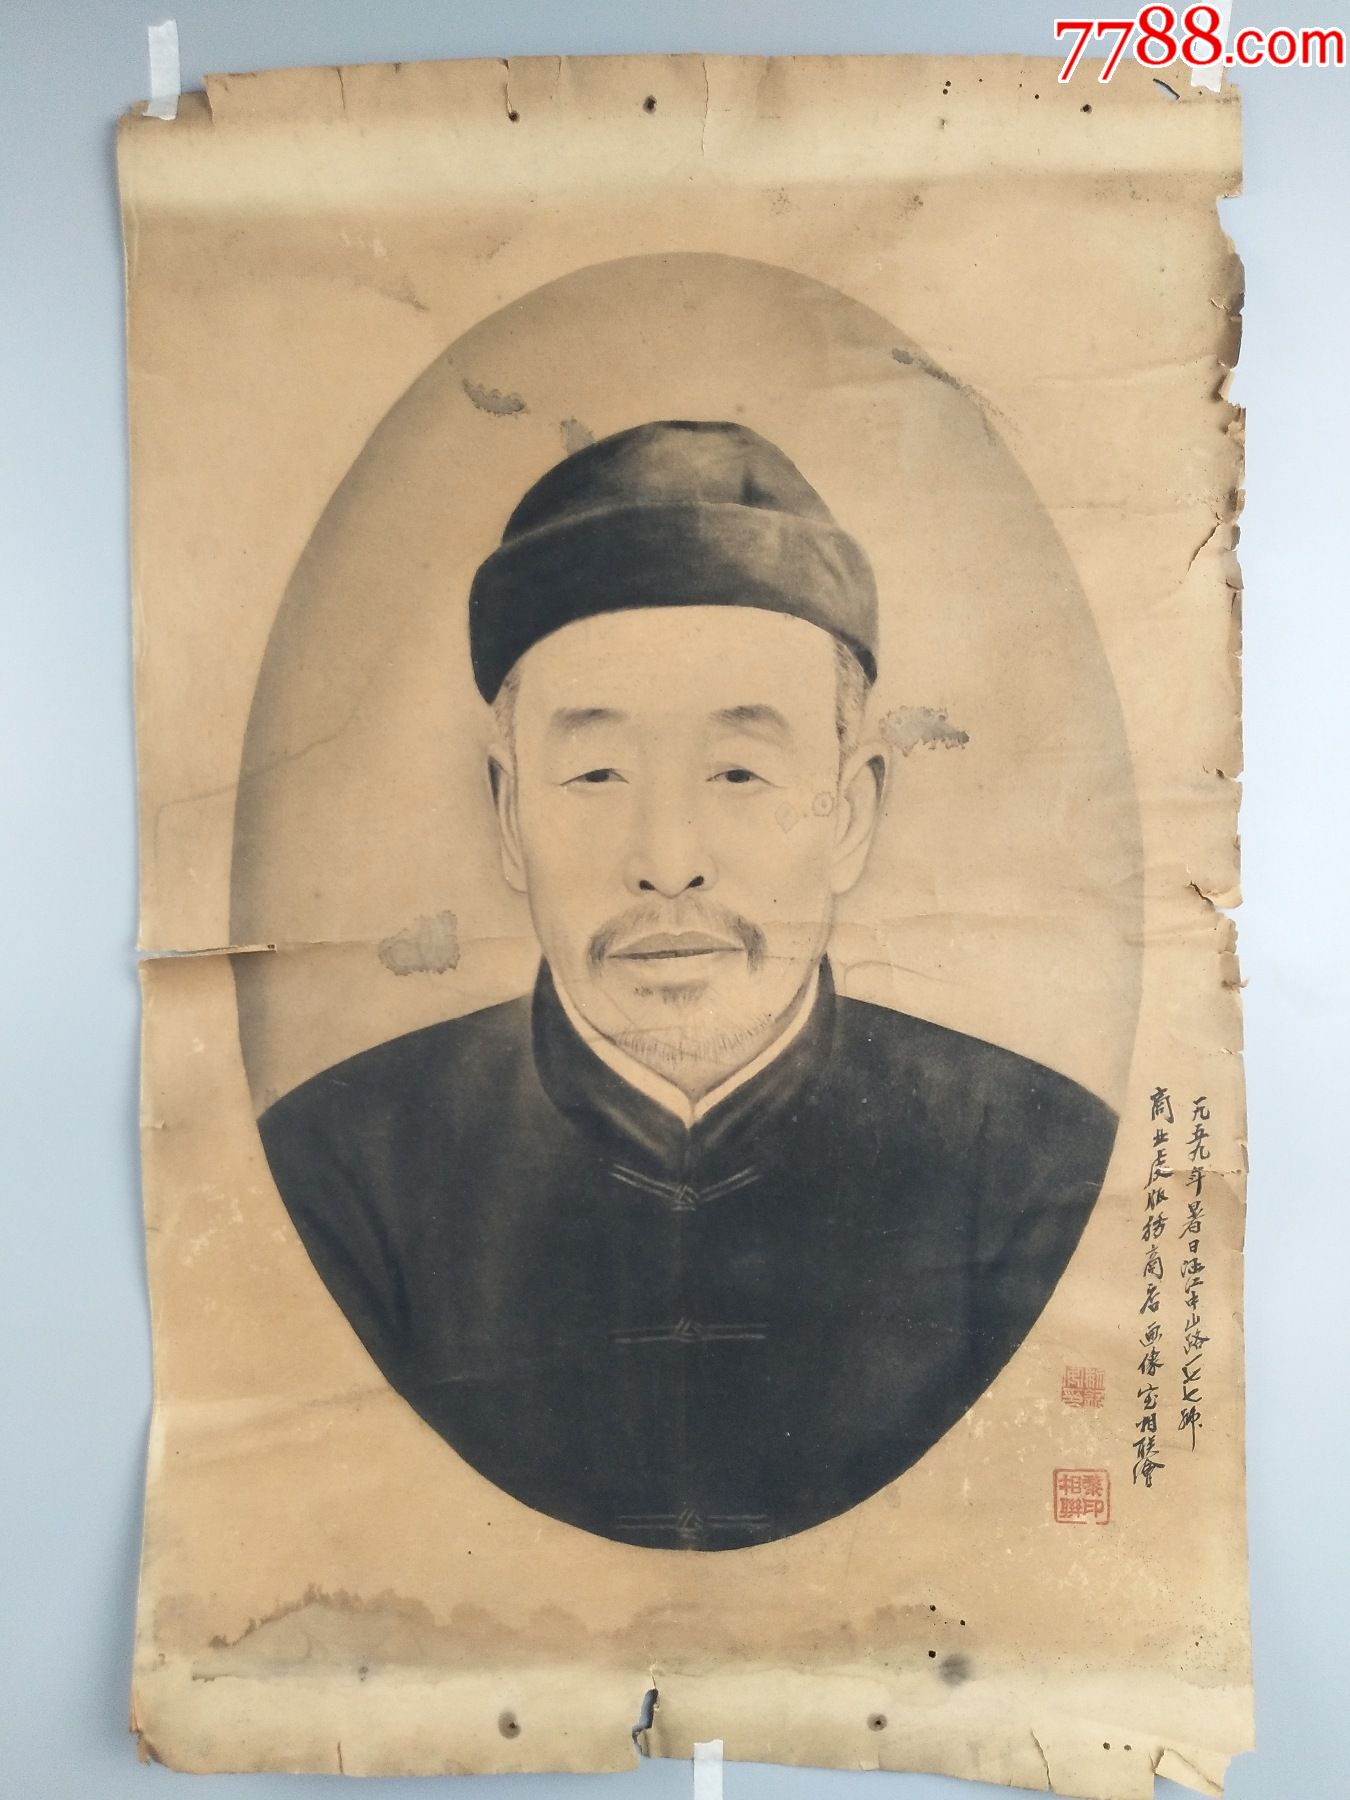 7788.com
一九五九年暑日涵江中山路一七七號
商业处服务商店画像室相联繪
黎印
相聯